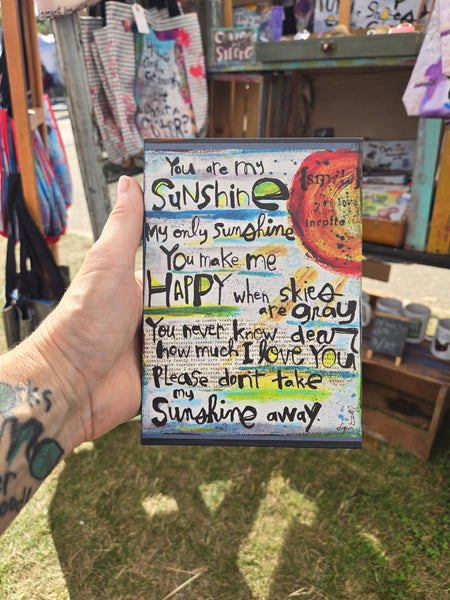 You are my
SunShine
My only sunshine
You make me
HAPPY when skies
are gray
You never know dear
how much I love You
Please dont take
my
Sunshine away
{smile
love
inspire